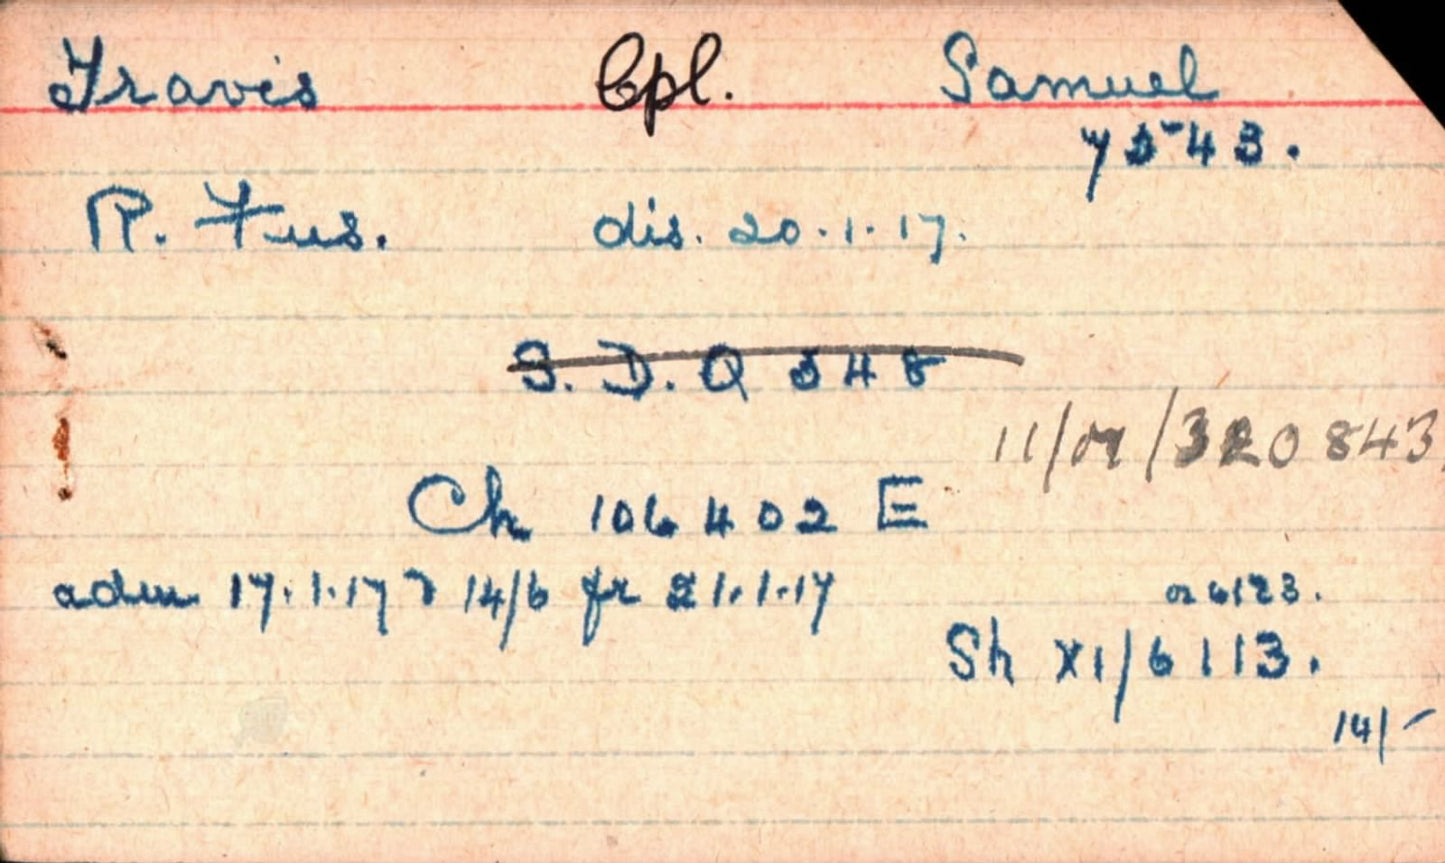 Travis Cpl. Samuel
7543.
R. Fus. dis. 20.1.17.
S.D.Q 348
11/M/320843
Ch 106402 E
adm 17.1.17 14/6 fr 21.1.17
or 6123.
Sh X1/6113.
14/-